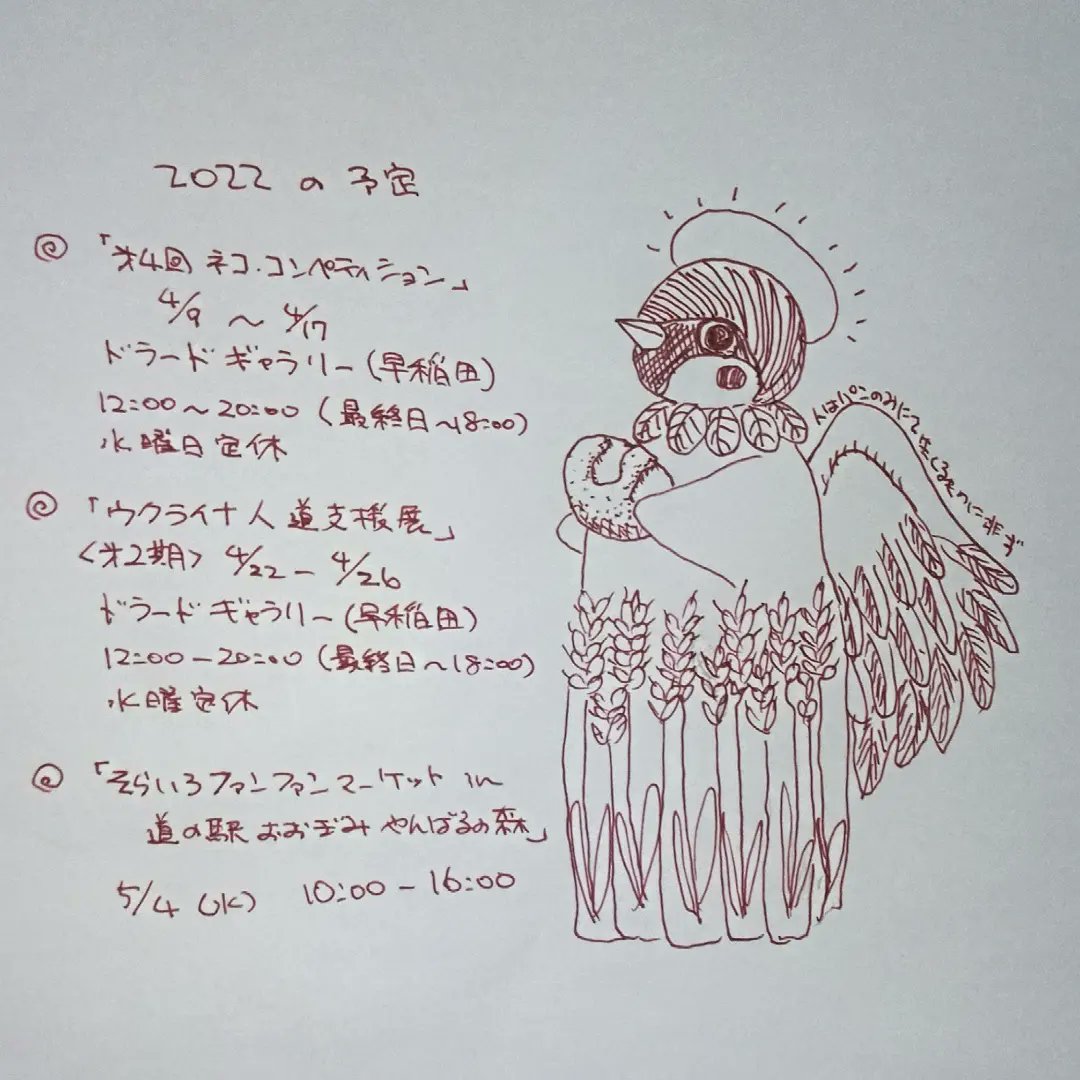 2022 の 予定
「才4回 ネコ・コンペティション」
4/9 〜 4/17
ドラード ギャラリー (早稲田)
12:00〜20:00 (最終日〜18:00)
水曜日定休
「ウクライナ人道支援展」
<才2期> 4/22 − 4/26
ドラード ギャラリー (早稲田)
12:00−20:00 (最終日〜18:00)
水曜定休
「そらいろファンファンマーケット in
道の駅 おおぎみ やんばるの森」
5/4 (水) 10:00 − 16:00
人はパンのみにて生くるものに非ず